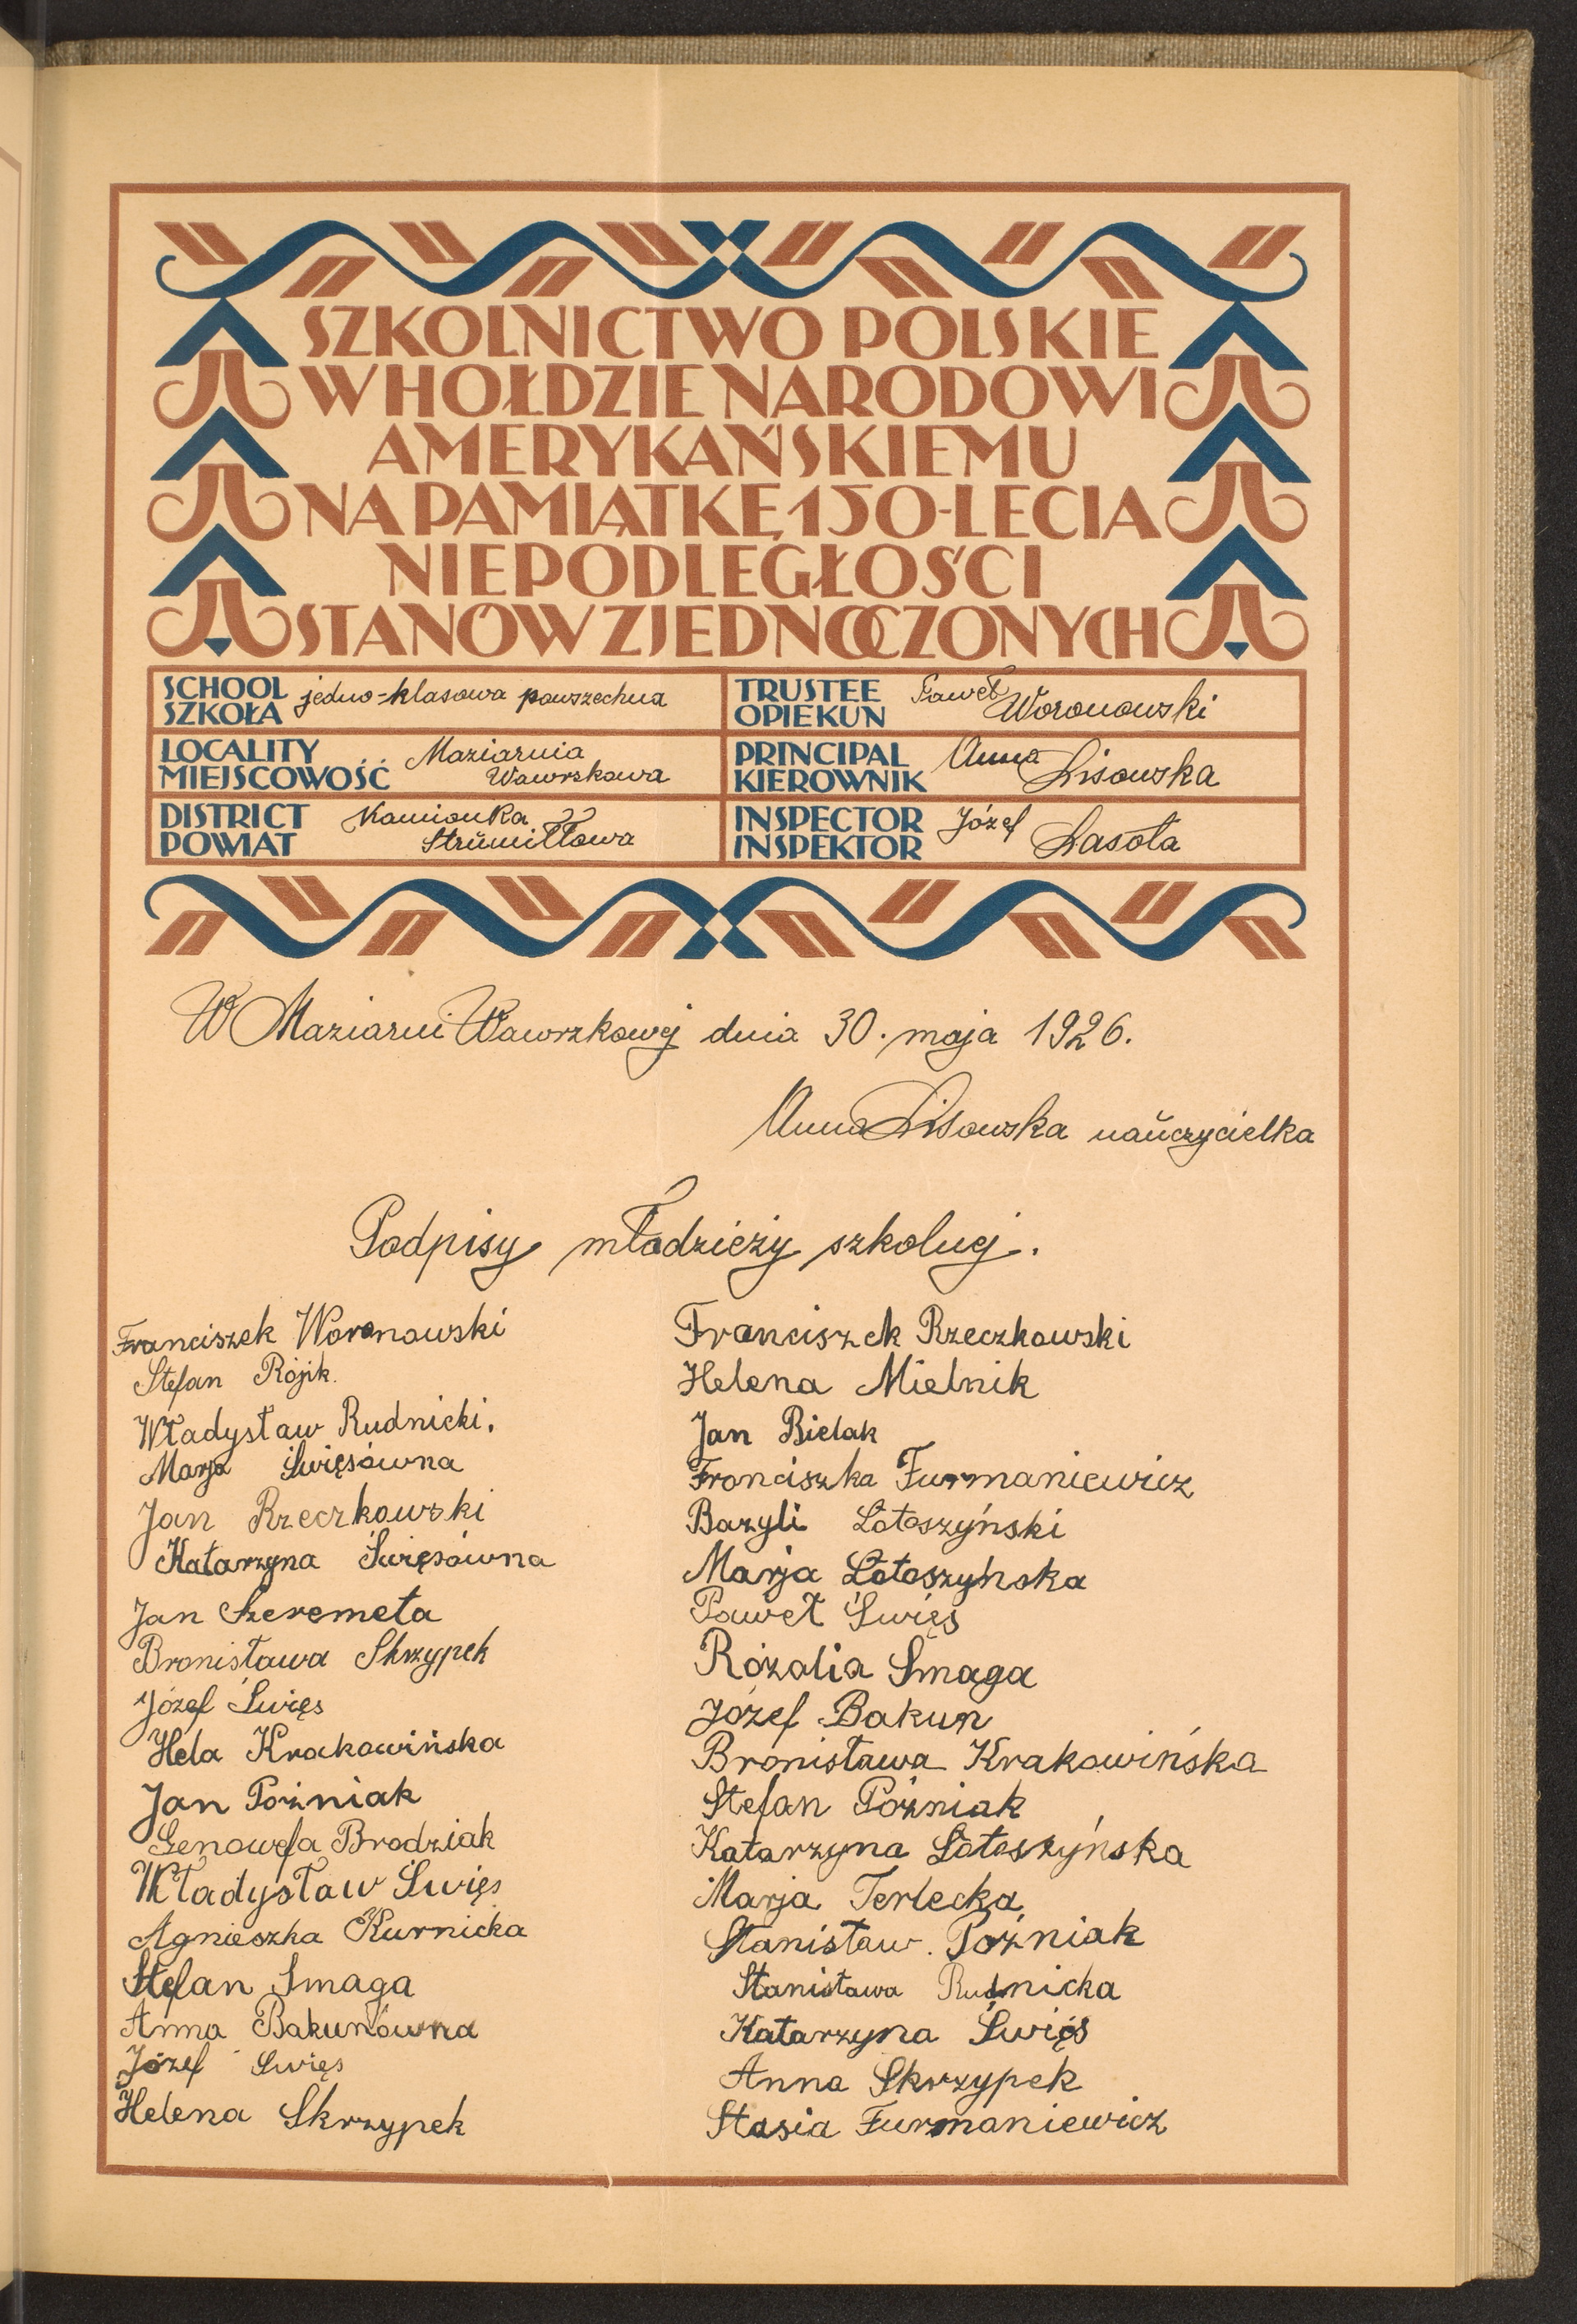 SZKOLNICTWO POLSKIE
W HOŁDZIE NARODOWI
AMERYKAŃSKIEMU
NA PAMIĄTKĘ 150-LECIA
NIEPODLEGŁOŚCI
STANÓW ZJEDNOCZONYCH
SCHOOL
SZKOŁA
jedno-klasowa powszechna
TRUSTEE
OPIEKUN
Paweł Woronowski
LOCALITY
MIEJSCOWOŚĆ
Maziarnia
Wawrzkowa
PRINCIPAL
KIEROWNIK
Anna Lisowska
DISTRICT
POWIAT
Kamionka
Strumiłłowa
INSPECTOR
INSPEKTOR
Józef Lasota
W Maziarni Wawrzkowej dnia 30. maja 1926.
Anna Lisowska nauczycielka
Podpisy młodzieży szkolnej.
Franciszek Woronowski
Stefan Rojik.
Władysław Rudnicki.
Marja Święsówna
Jan Rzeczkowski
Katarzyna Święsówna
Jan Szeremeta
Bronisława Skrzypek
Józef Święs
Hela Krakowińska
Jan Poźniak
Genowefa Brodziak
Władysław Święs
Agnieszka Kurnicka
Stefan Smaga
Anna Bakunówna
Józef Święs
Helena Skrzypek
Franciszek Rzeczkowski
Helena Mielnik
Jan Bielak
Franciszka Furmaniewicz
Bazyli Łotoszyński
Marja Łotoszyńska
Paweł Święs
Rozalia Smaga
Józef Bakun
Bronisława Krakowińska
Stefan Poźniak
Katarzyna Łotoszyńska
Marja Terlecka
Stanisław. Poźniak
Stanisława Rudnicka
Katarzyna Święs
Anna Skrzypek
Stasia Furmaniewicz